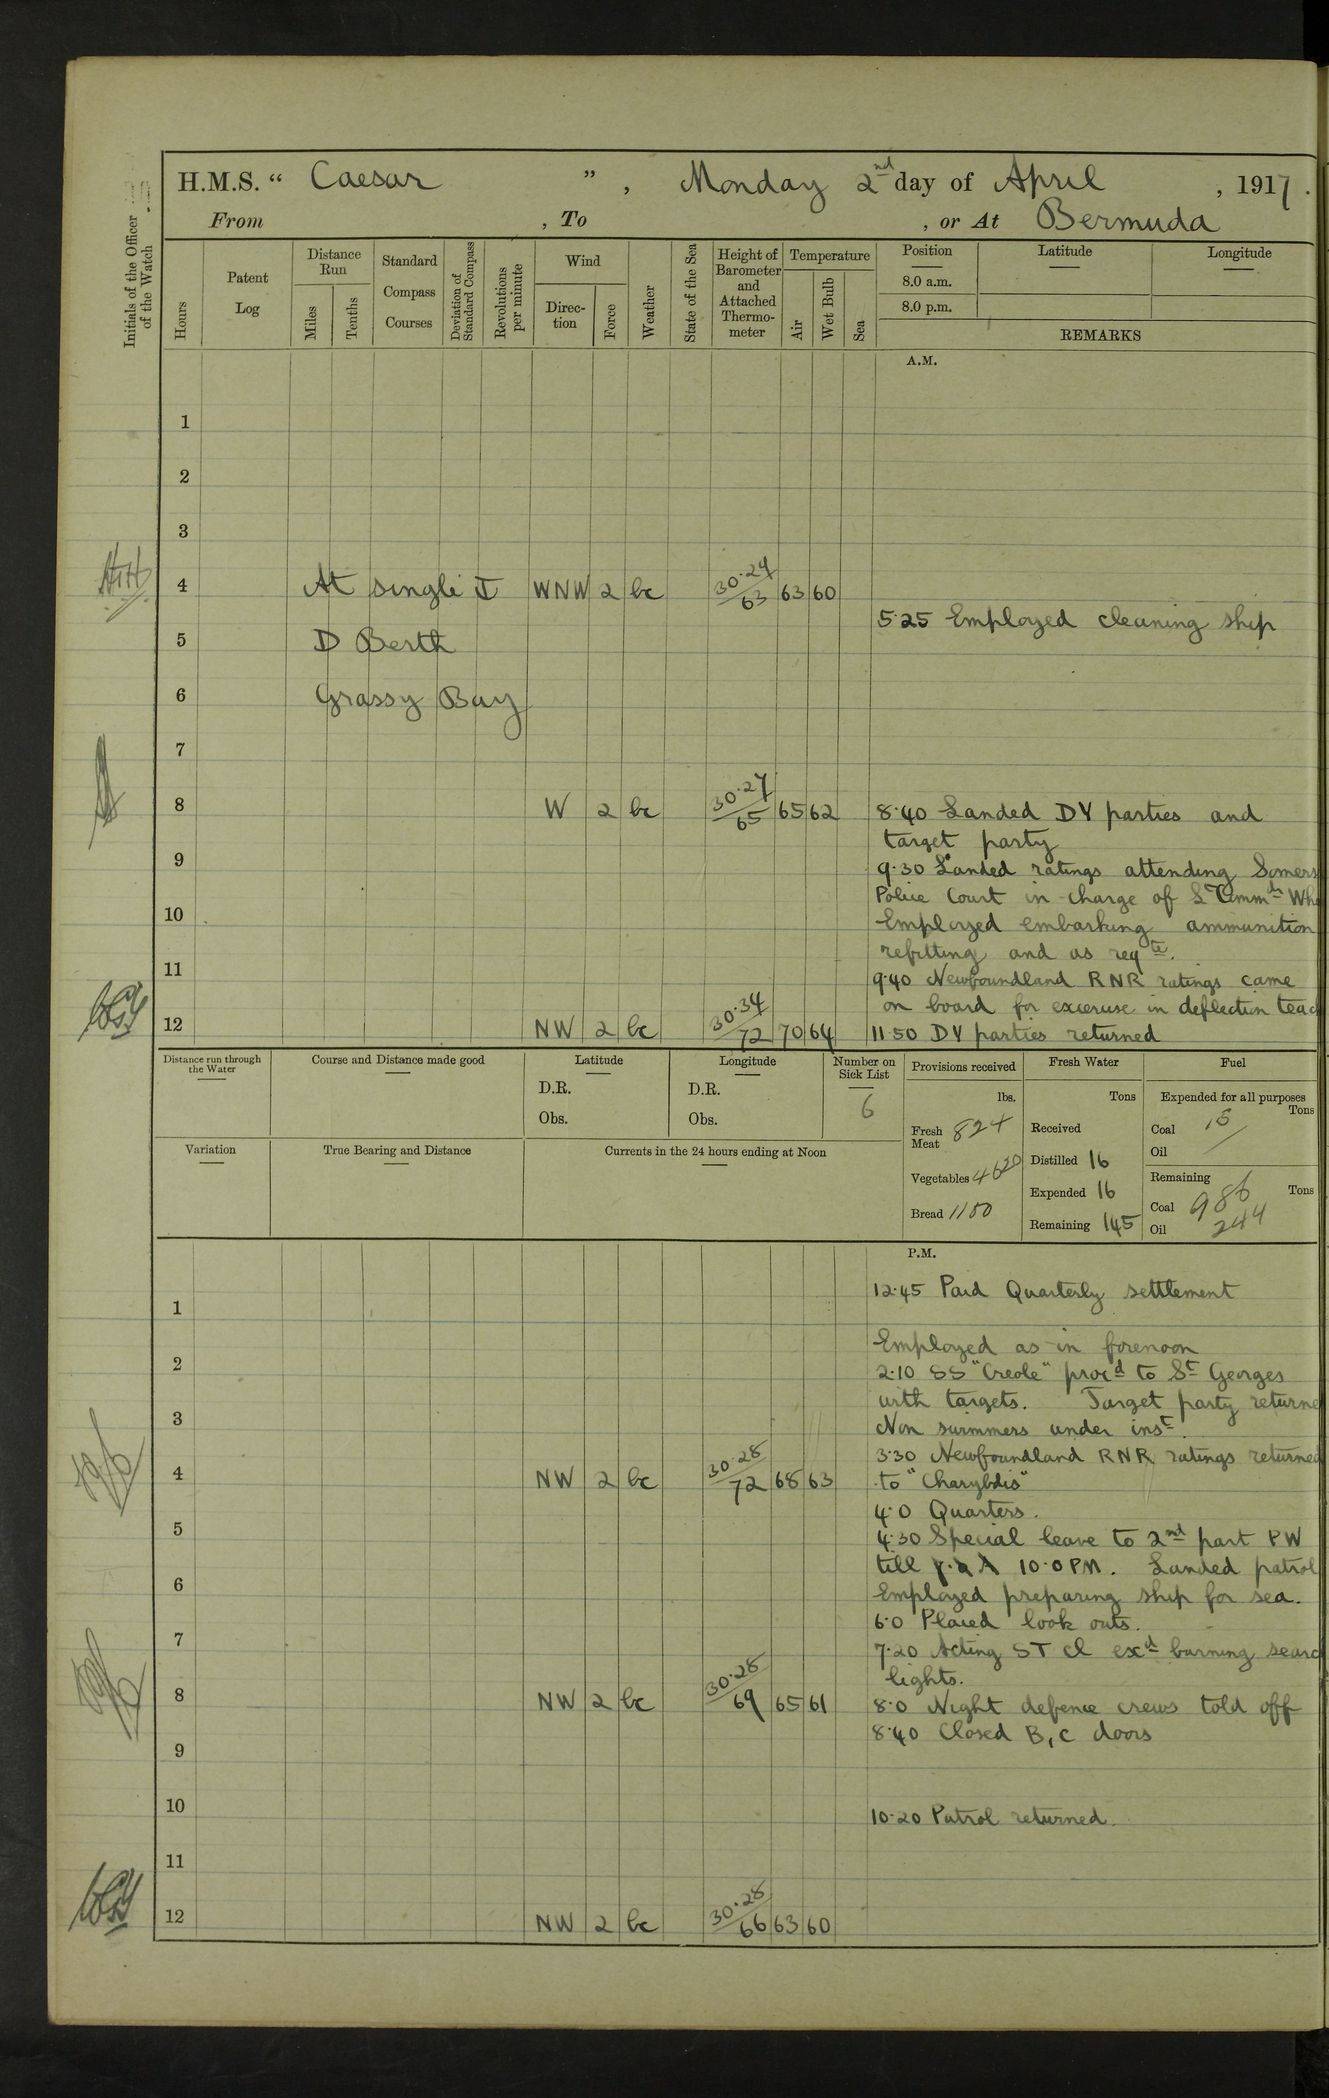 H.M.S. “ Caesar ” , Monday 2nd day of April , 1917 .
From , To , or At Bermuda
Initials of the Officer of the Watch
Hours
Patent Log
Distance Run
Miles
Tenths
Standard Compass Courses
Deviation of Standard Compass
Revolutions per minute
Wind
Direc-tion
Force
Weather
State of the Sea
Height of Barometer and Attached Thermo-meter
Temperature
Air
Wet Bulb
Sea
Position
8.0 a.m.
8.0 p.m.
Latitude
Longitude
REMARKS
A.M.
1
2
3
4 At single WNW 2 bc 30.24 63 63 60
5.25 Employed cleaning ship
5 D Berth
6 Grassy Bay
7
8 W 2 bc 30.27 65 65 62 8.40 Landed DY parties and
target party
9
9.30 Landed ratings attending Somers
Police Court in charge of
10
Employed embarking ammunition
refitting and as reqte.
11
9.40 Newfoundland RNR ratings came
on board for exercise in deflection
12 NW 2 bc 30.34 72 70 64 11.50 DY parties returned
Distance run through the Water
Course and Distance made good
Latitude
D.R.
Obs.
Longitude
D.R.
Obs.
Number on Sick List
6
Provisions received
lbs.
Fresh Meat 824
Vegetables 4620
Bread 1180
Fresh Water
Tons
Received
Distilled 16
Expended 16
Remaining 145
Fuel
Expended for all purposes
Tons
Coal
Oil
Remaining
Tons
Coal 986
Oil 244
Variation
True Bearing and Distance
Currents in the 24 hours ending at Noon
P.M.
12.45 Paid Quarterly settlement
1
Employed as in forenoon
2
2.10 SS "Creole" procd to St Georges
with targets. Target party returne
3
Non swimmers under inst.
3.30 Newfoundland RNR ratings returned
4 NW 2 bc 30.28 72 68 63 to "Charybdis"
4.0 Quarters.
5
4.30 Special leave to 2nd part PW
till 10.0 PM. Landed patrol
6
Employed preparing ship for sea.
6.0 Placed look outs.
7
7.20 Acting ST cl exd burning searc
lights.
8 NW 2 bc 30.28 69 65 61 8.0 Night defence crews told off
8.40 Closed B, C doors
9
10
10.20 Patrol returned.
11
12 NW 2 bc 30.28 66 63 60